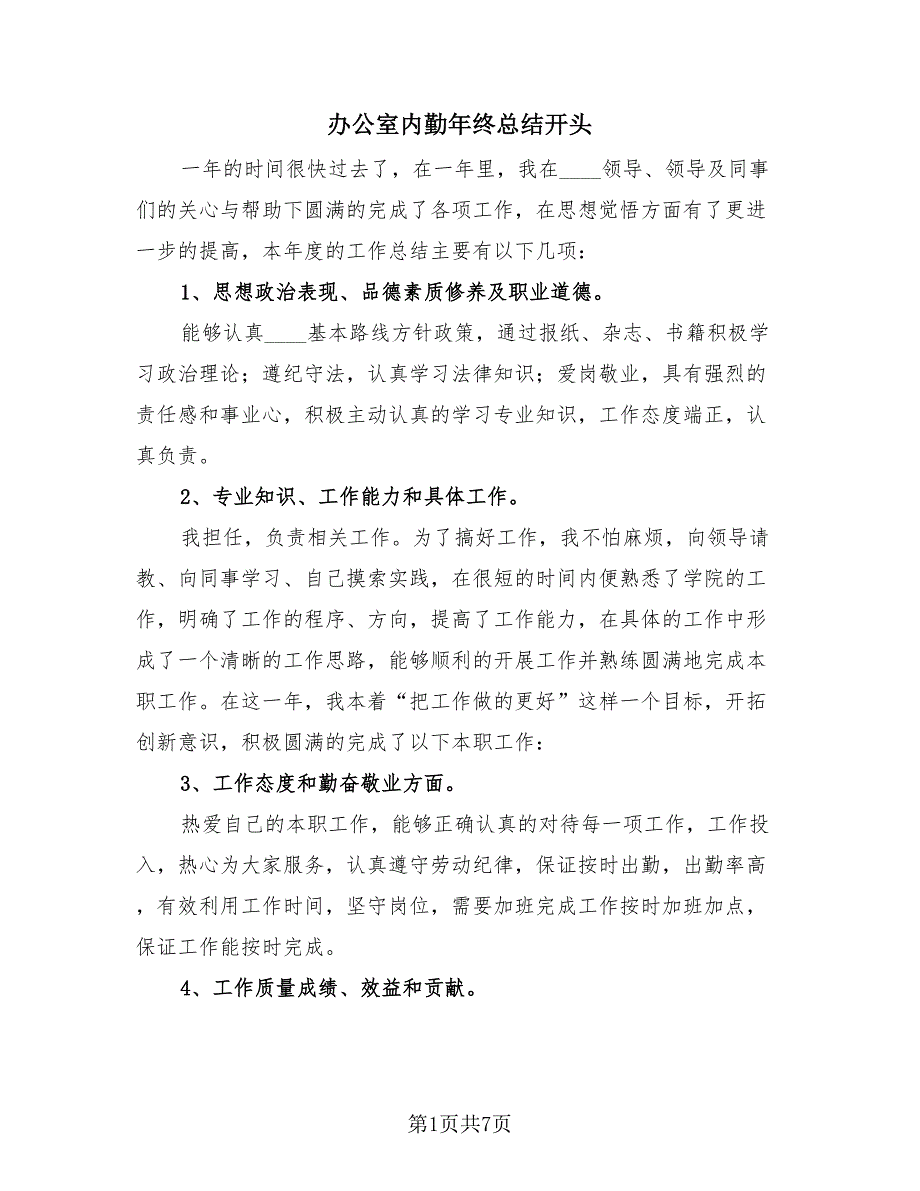 办公室内勤年终总结开头
一年的时间很快过去了，在一年里，我在____领导、领导及同事
们的关心与帮助下圆满的完成了各项工作，在思想觉悟方面有了更进
一步的提高，本年度的工作总结主要有以下几项：
1、思想政治表现、品德素质修养及职业道德。
能够认真____基本路线方针政策，通过报纸、杂志、书籍积极学
习政治理论；遵纪守法，认真学习法律知识；爱岗敬业，具有强烈的
责任感和事业心，积极主动认真的学习专业知识，工作态度端正，认
真负责。
2、专业知识、工作能力和具体工作。
我担任，负责相关工作。为了搞好工作，我不怕麻烦，向领导请
教、向同事学习、自己摸索实践，在很短的时间内便熟悉了学院的工
作，明确了工作的程序、方向，提高了工作能力，在具体的工作中形
成了一个清晰的工作思路，能够顺利的开展工作并熟练圆满地完成本
职工作。在这一年，我本着“把工作做的更好”这样一个目标，开拓
创新意识，积极圆满的完成了以下本职工作：
3、工作态度和勤奋敬业方面。
热爱自己的本职工作，能够正确认真的对待每一项工作，工作投
入，热心为大家服务，认真遵守劳动纪律，保证按时出勤，出勤率高
，有效利用工作时间，坚守岗位，需要加班完成工作按时加班加点，
保证工作能按时完成。
4、工作质量成绩、效益和贡献。
第1页共7页